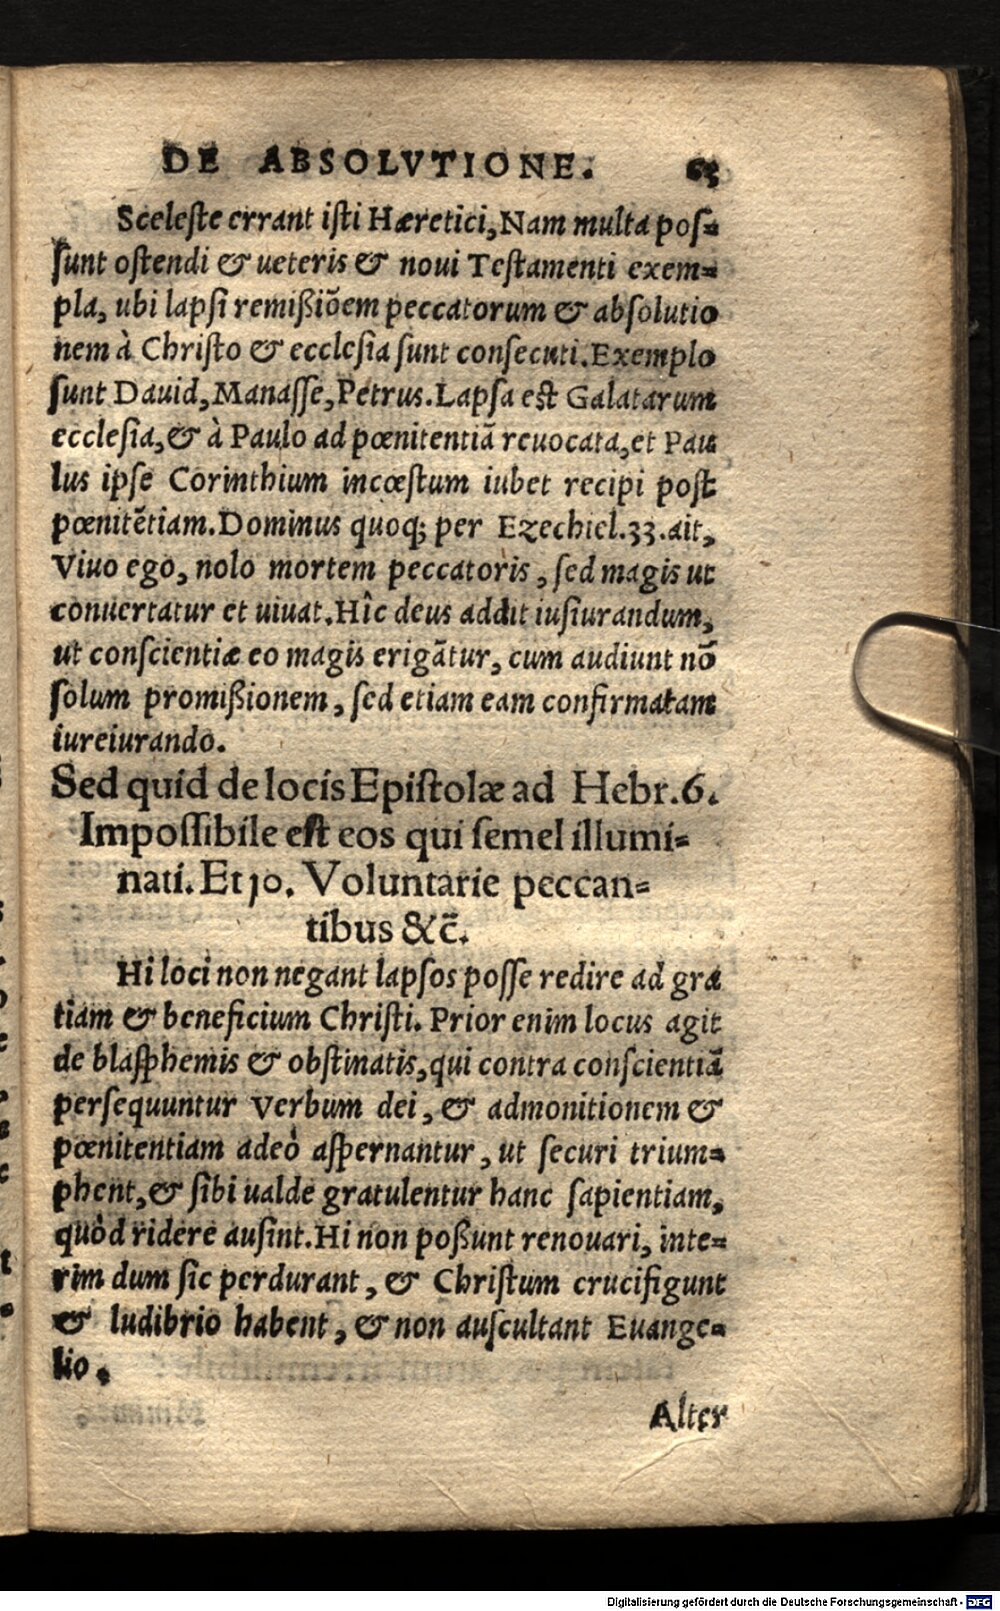 DE ABSOLVTIONE. 63
Sceleſte errant iſti Hæretici, Nam multa poſ=
ſunt oſtendi & ueteris & noui Teſtamenti exem=
pla, ubi lapſi remißiõem peccatorum & abſolutio
nem à Chriſto & eccleſia ſunt conſecuti. Exemplo
ſunt Dauid, Manaſſe, Petrus. Lapſa eſt Galatarum
eccleſia, & à Paulo ad pœnitentiã reuocata, et Pau
lus ipſe Corinthium incœſtum iubet recipi poſt
pœnitẽtiam. Dominus quoq; per Ezechiel. 33. ait,
Viuo ego, nolo mortem peccatoris, ſed magis ut
conuertatur et uiuat. Hîc deus addit iuſiurandum,
ut conſcientiæ eo magis erigãtur, cum audiunt nõ
ſolum promißionem, ſed etiam eam confirmatam
iureiurando.
Sed quid de locis Epiſtolæ ad Hebr. 6.
Impoſſibile eſt eos qui ſemel illumi=
nati. Et 10. Voluntarie peccan=
tibus &c̃.
Hi loci non negant lapſos poſſe redire ad gra
tiam & beneficium Chriſti. Prior enim locus agit
de blaſphemis & obſtinatis, qui contra conſcientiã
perſequuntur Verbum dei, & admonitionem &
pœnitentiam adeò aſpernantur, ut ſecuri trium=
phent, & ſibi ualde gratulentur hanc ſapientiam,
quòd ridere auſint. Hi non poßunt renouari, inte=
rim dum ſic perdurant, & Chriſtum crucifigunt
& ludibrio habent, & non auſcultant Euange=
lio.
Alter
Digitalisierung gefördert durch die Deutsche Forschungsgemeinschaft - DFG